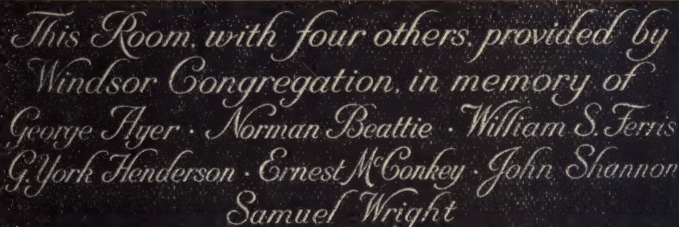 This Room, with four others, provided by
Windsor Congregation, in memory of
George Ayer · Norman Beattie · William S. Ferris
G. York Henderson · Ernest McConkey · John Shannon
Samuel Wright